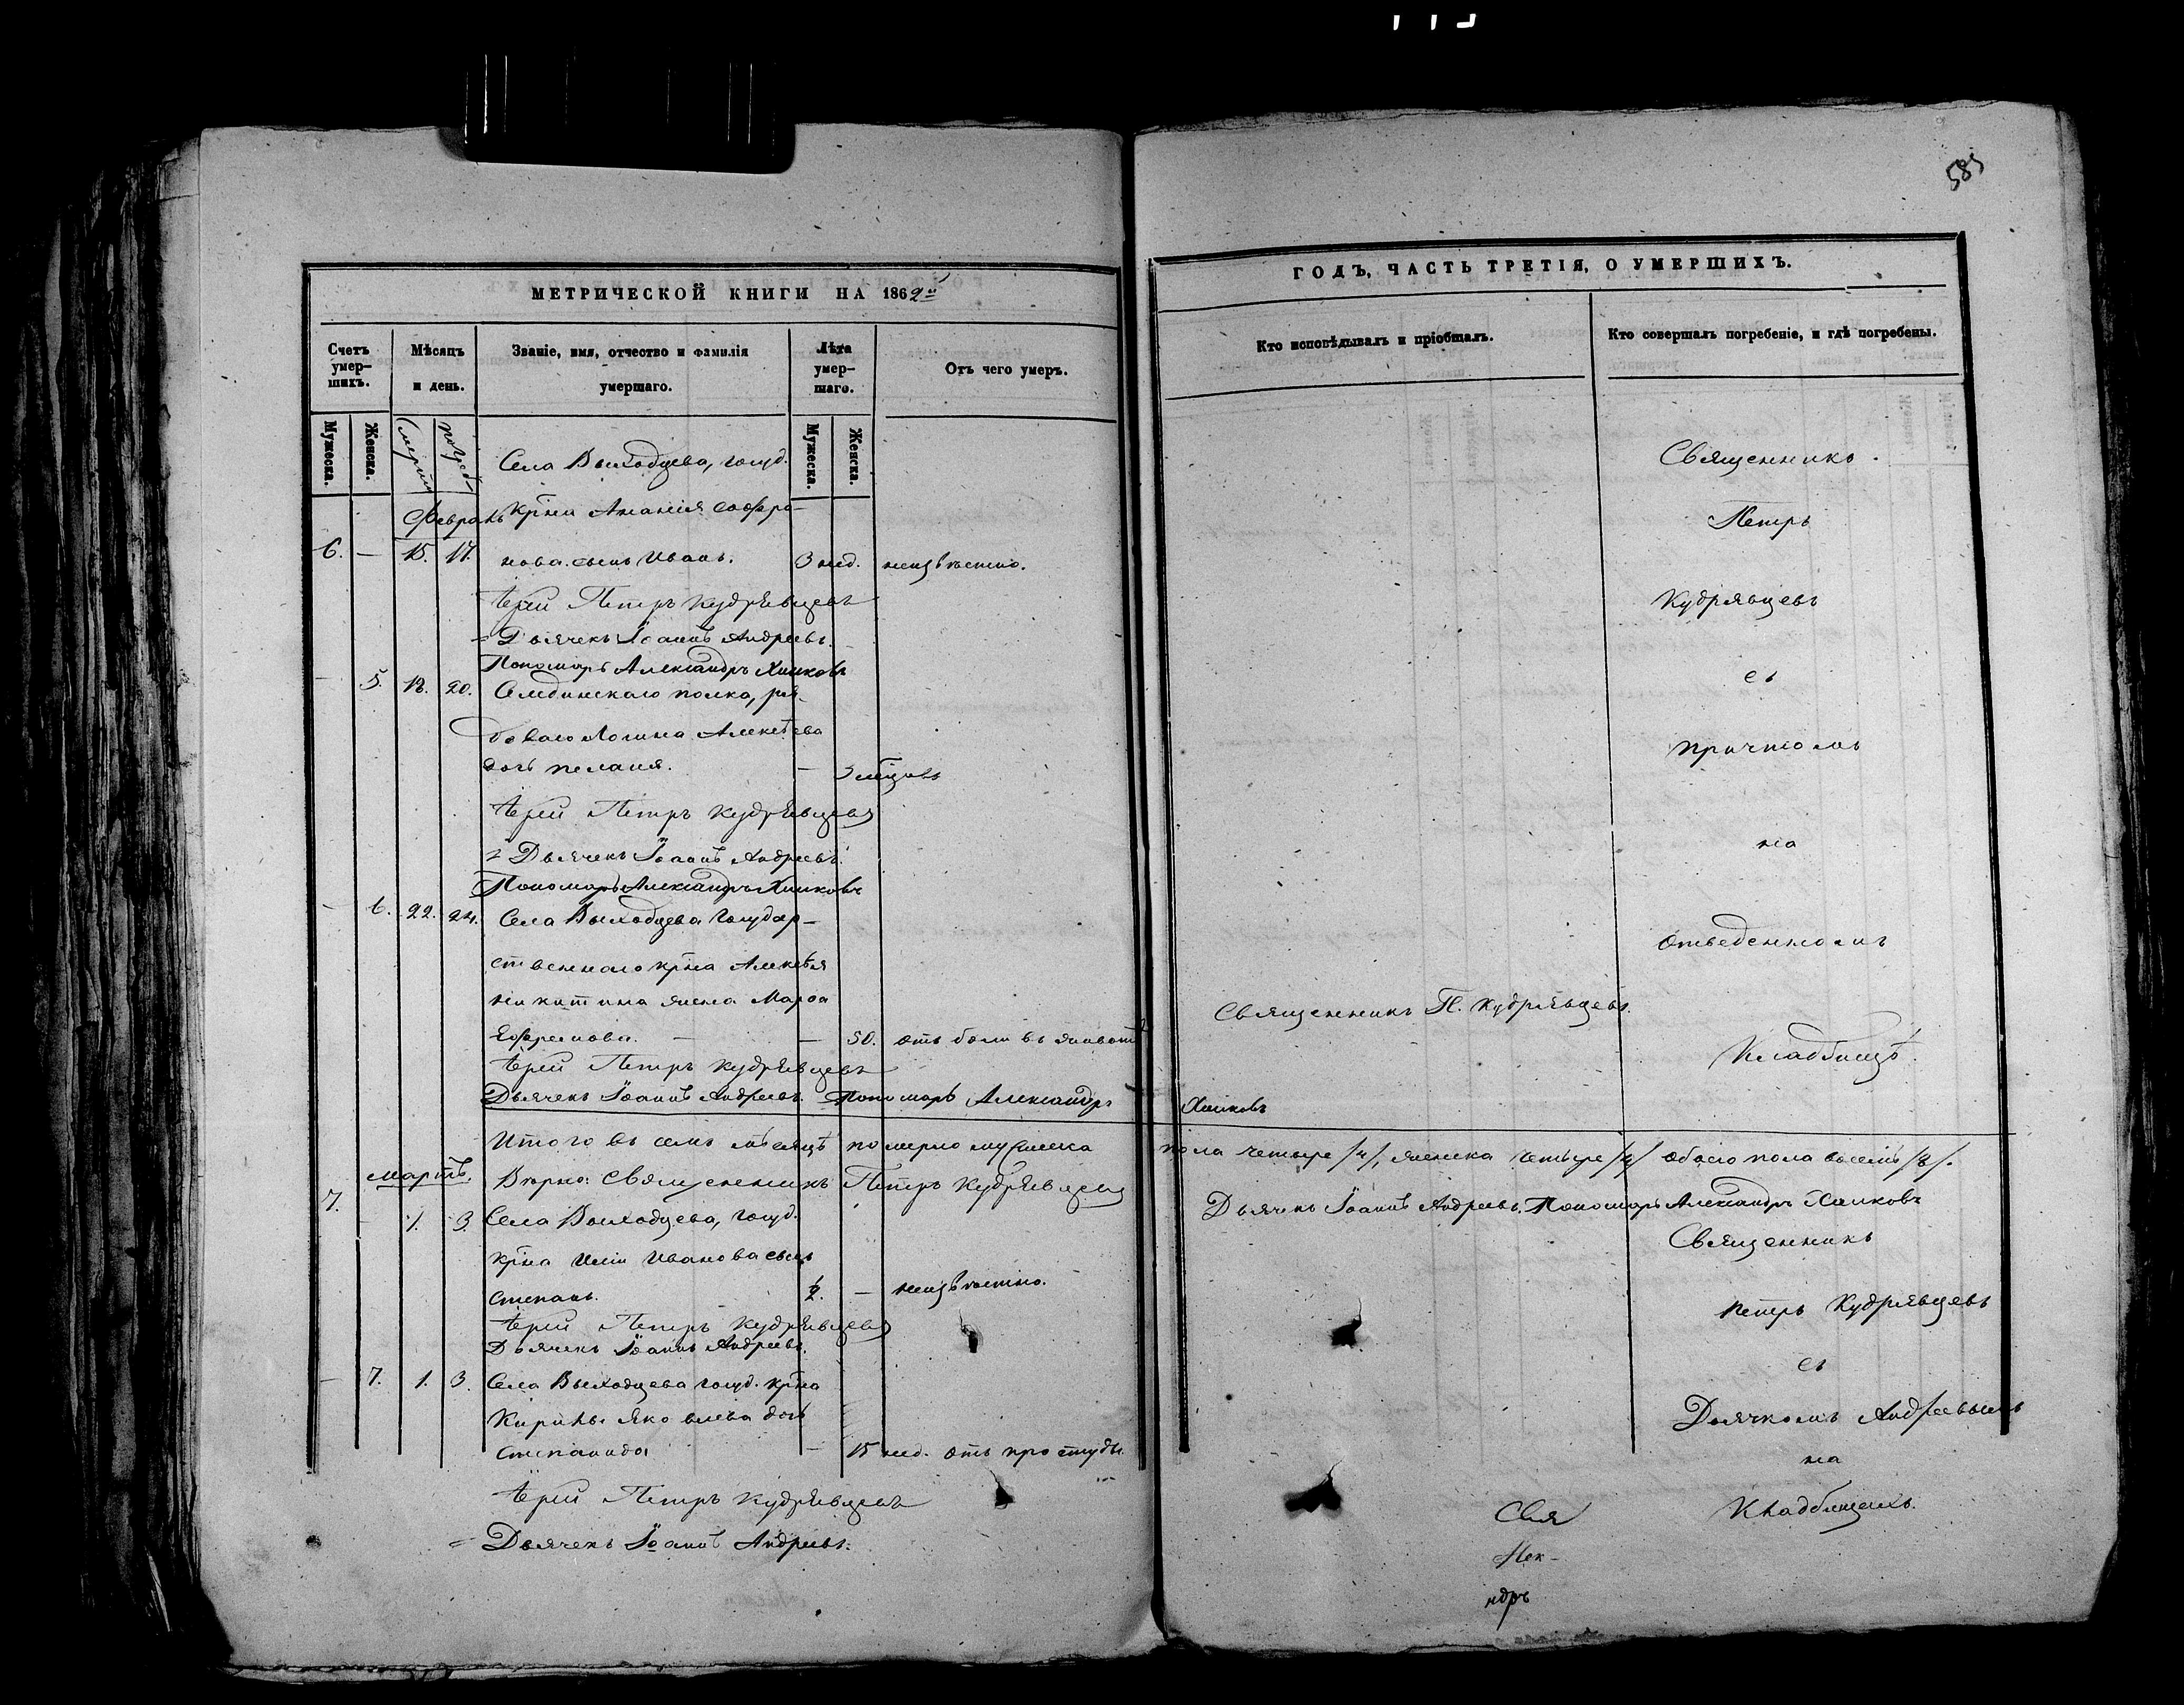 585
МЕТРИЧЕСКОЙ КНИГИ НА 1862й
Счетъ умер-
шихъ.
Мѣсяцъ
и день.
Званіе, имя, отчество и фамилія
умершаго.
Лѣта
умер-
шаго.
Отъ чего умеръ.
Мужеска.
Женска.
Смерти
погреб.
Мужеска.
Женска.
Села Выходцева, госуд.
Февраль крѣна Ананія Софро-
6. — 15. 17. нова сынъ Иванъ. 3 нед. неизвѣстно.
Іерей Петръ Кудрявцевъ
Дьячекъ Іоаннъ Андреевъ.
Пономарь Александръ Хилковъ
— 5. 18. 20. полка, ря-
доваго Логина Алексѣева
дочь Пелагія. — мѣсяцовъ
Іерей Петръ Кудрявцевъ
Дьячекъ Іоаннъ Андреевъ.
Пономарь Александръ Хилковъ
— 6. 22. 24. Села Выходцева государ-
ственнаго крѣна Алексѣя
Никитина жена Марѳа
Ефремова. — — 50. отъ боли въ животѣ
Іерей Петръ Кудрявцевъ
Дьячекъ Іоаннъ Андреевъ. Пономарь Александръ Хилковъ
Итого въ семъ мѣсяцѣ померло мужеска пола четыре /4/, женска четыре /4/ обоего пола восемь /8/.
Мартъ. Вѣрно: Священникъ Петръ Кудрявцевъ Дьячекъ Іоаннъ Андреевъ. Пономарь Александръ Хилковъ
7. — 1. 3. Села Выходцева, госуд.
крѣна Иліи Иванова сынъ
Степанъ. — неизвѣстно.
Іерей Петръ Кудрявцевъ
Дьячекъ Іоаннъ Андреевъ.
— 7. 1. 3. Села Выходцева госуд. крѣна
Кирилы Яковлева дочь
Степанида — 15 нед. отъ простуды.
Іерей Петръ Кудрявцевъ
Дьячекъ Іоаннъ Андреевъ.
ГОДЪ, ЧАСТЬ ТРЕТІЯ, О УМЕРШИХЪ.
Кто исповѣдывалъ и пріобщалъ.
Кто совершалъ погребеніе, и гдѣ погребены.
Священникъ
Петръ
Кудрявцевъ
съ
причтомъ
на
отведенномъ
Священникъ П. Кудрявцевъ.
Кладбищѣ.
Священникъ
Петръ Кудрявцевъ
съ
Дьячкомъ Андреевымъ
на
Кладбищахъ.
Свя
ндръ